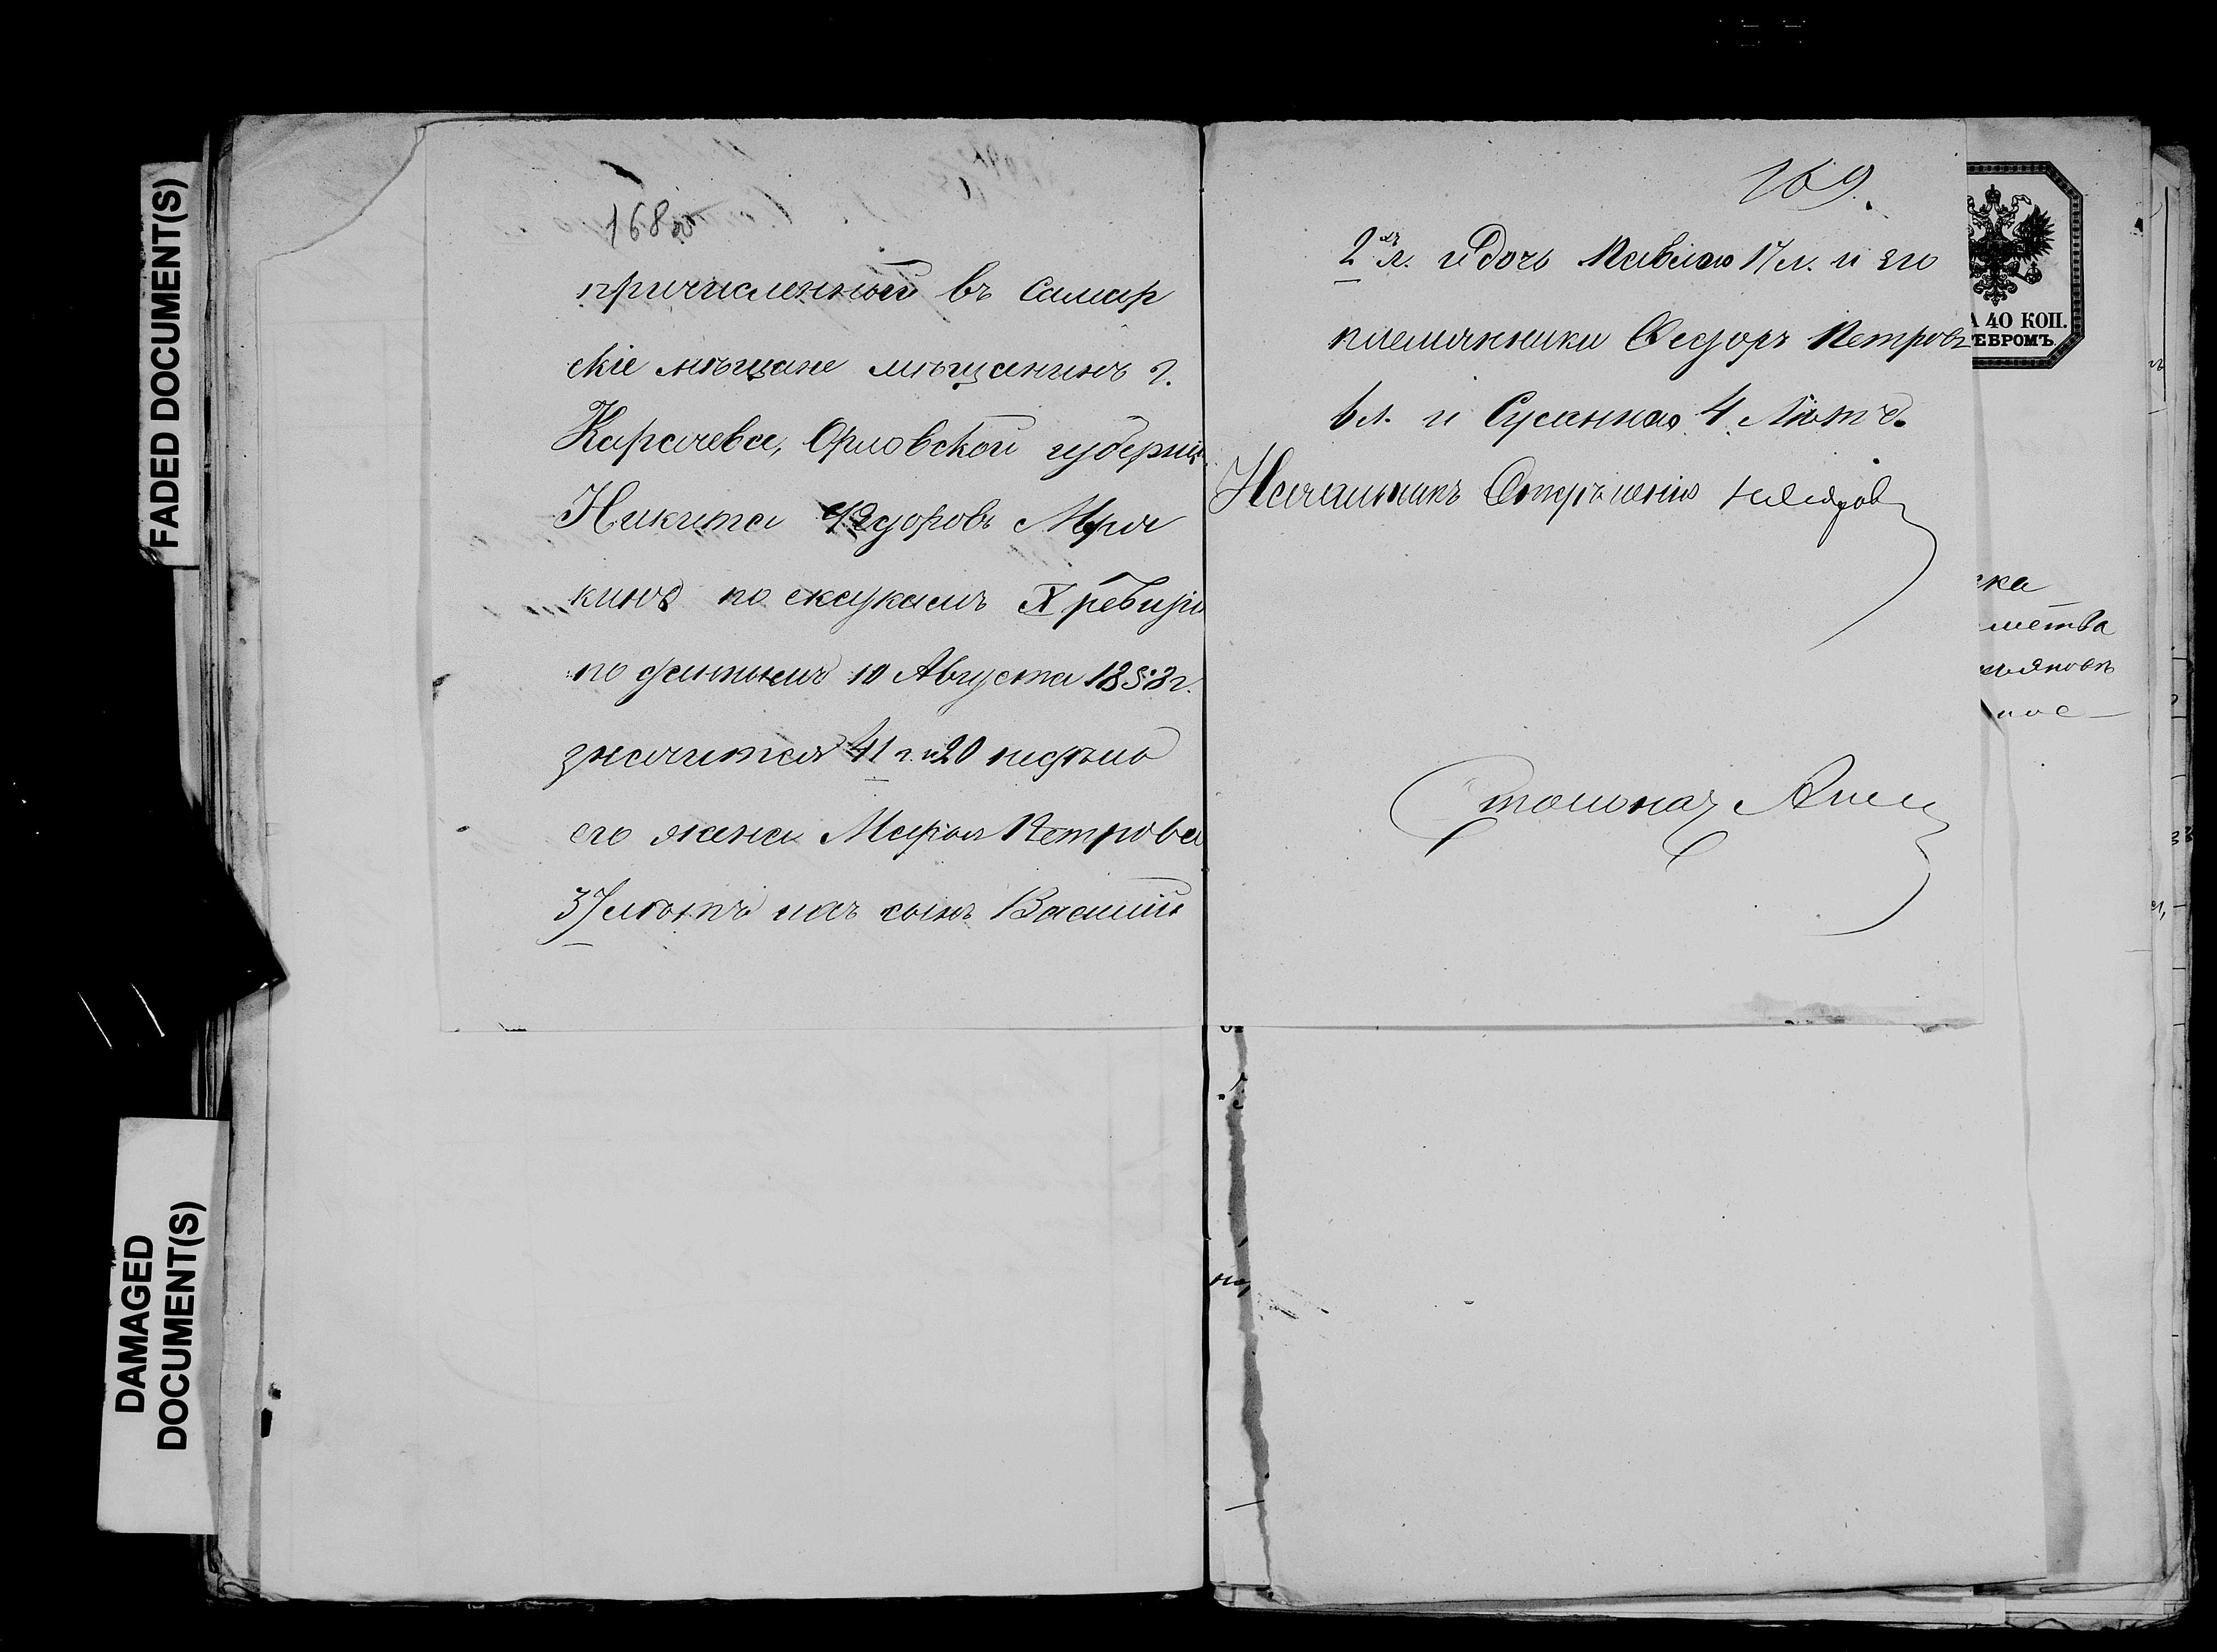 FADED DOCUMENT(S)
DAMAGED
DOCUMENT(S)
168
причисленный въ Самар
скіе мѣщане мѣщанинъ г.
Карачева, Орловской губерніи
Никита Ѳедоровъ Мря
кинъ по сказкамъ X ревизіи
по даннымъ 10 Августа 1858 г.
значится 41 г. и 20 недѣль
его жена Марья Петрова
37 лѣтъ ихъ сынъ Василій
169.
2хъ л. и дочь 17 л. и его
племянники Ѳедоръ Петровъ
6 л. и Сусанна 4 лѣтъ.
Начальникъ Отдѣленія
Столонач
А 40 КОП.
ЕБРОМЪ.
ска